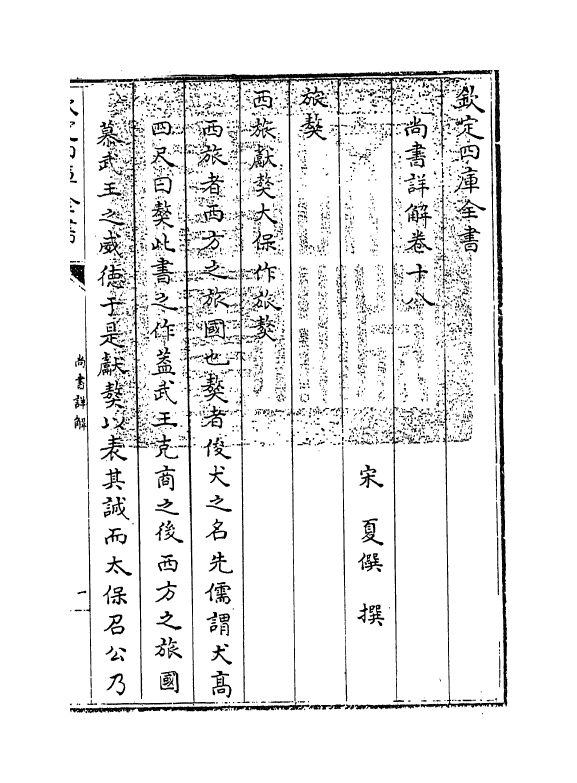 欽定四庫全書
尚書詳解卷十八
宋 夏僎 撰
旅獒
西旅獻獒太保作旅獒
西旅者西方之旅國也獒者俊犬之名先儒謂犬高
四尺曰獒此書之作葢武王克商之後西方之旅國
慕武王之威徳于是獻獒以表其誠而太保召公乃
欽定四庫全書
尚書詳解
一